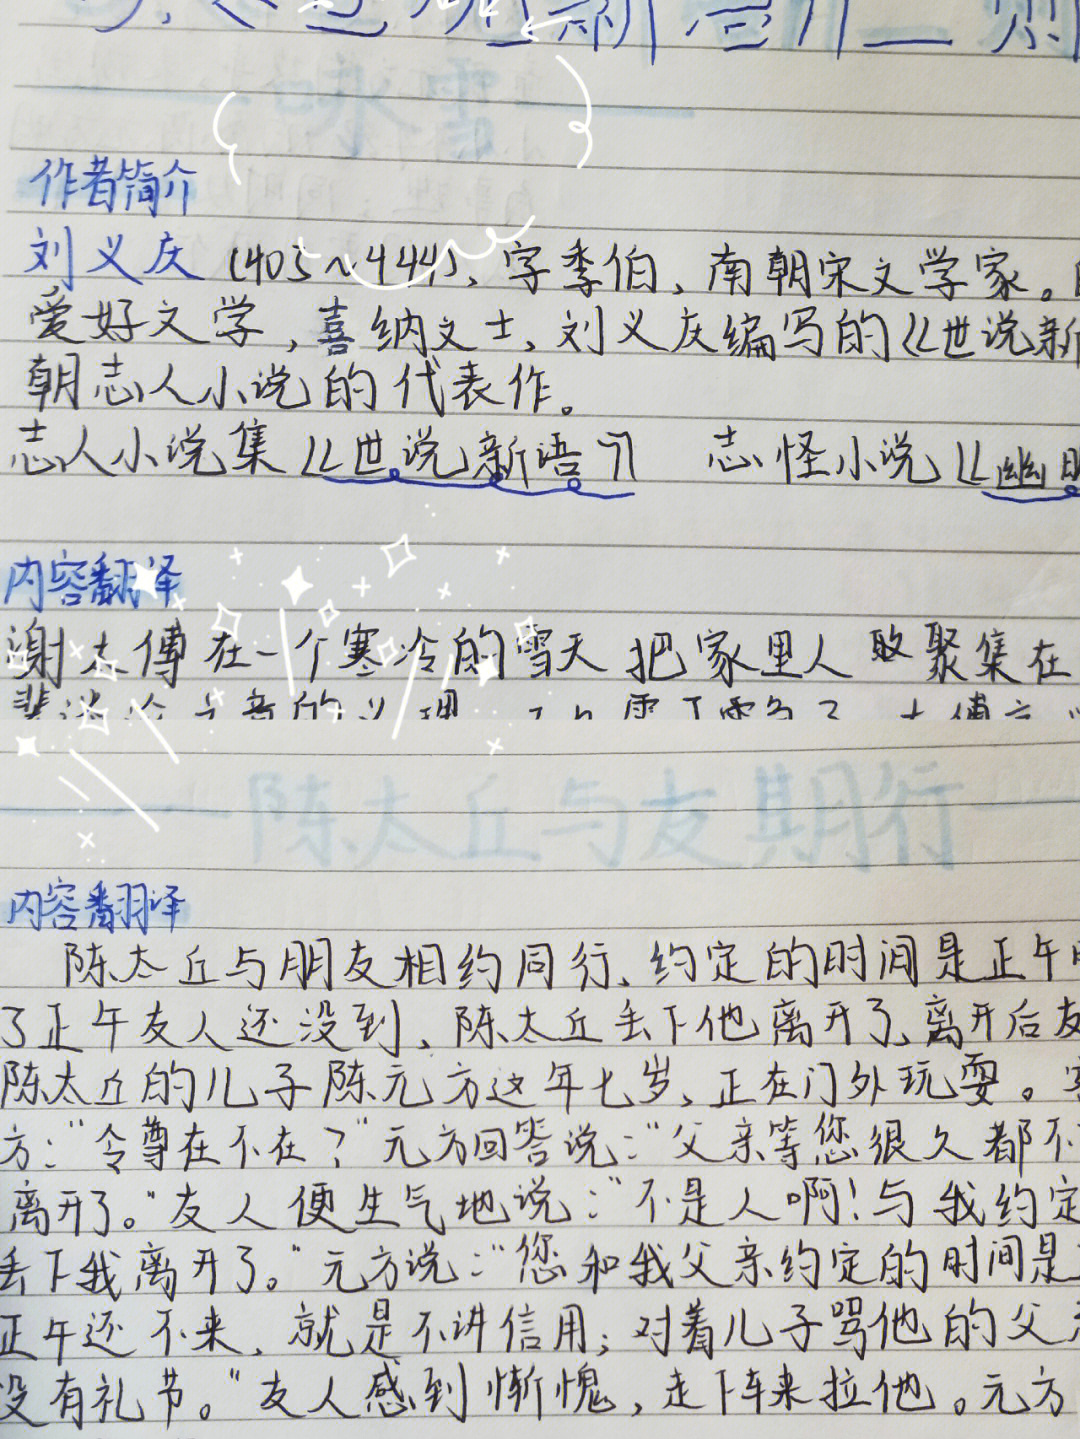 世说新语二则
咏雪
作者简介
刘义庆(403~444)、字季伯、南朝宋文学家。
爱好文学,喜纳文士、刘义庆编写的《世说新
朝志人小说的代表作。
志人小说集《世说新语》 志怪小说《幽明
内容翻译
谢太傅在一个寒冷的雪天把家里人敢聚集在
陈太丘与友期行
内容翻译
陈太丘与朋友相约同行、约定的时间是正午
了正午友人还没到、陈太丘丢下他离开了、离开后友
陈太丘的儿子陈元方这年七岁、正在门外玩耍。
方:“令尊在不在?”元方回答说:“父亲等您很久都不
离开了。”友人便生气地说:“不是人啊!与我约定
丢下我离开了。”元方说:“您和我父亲约定的时间是
正午还不来、就是不讲信用;对着儿子骂他的父
没有礼节。”友人感到惭愧,走下车来拉他。元方